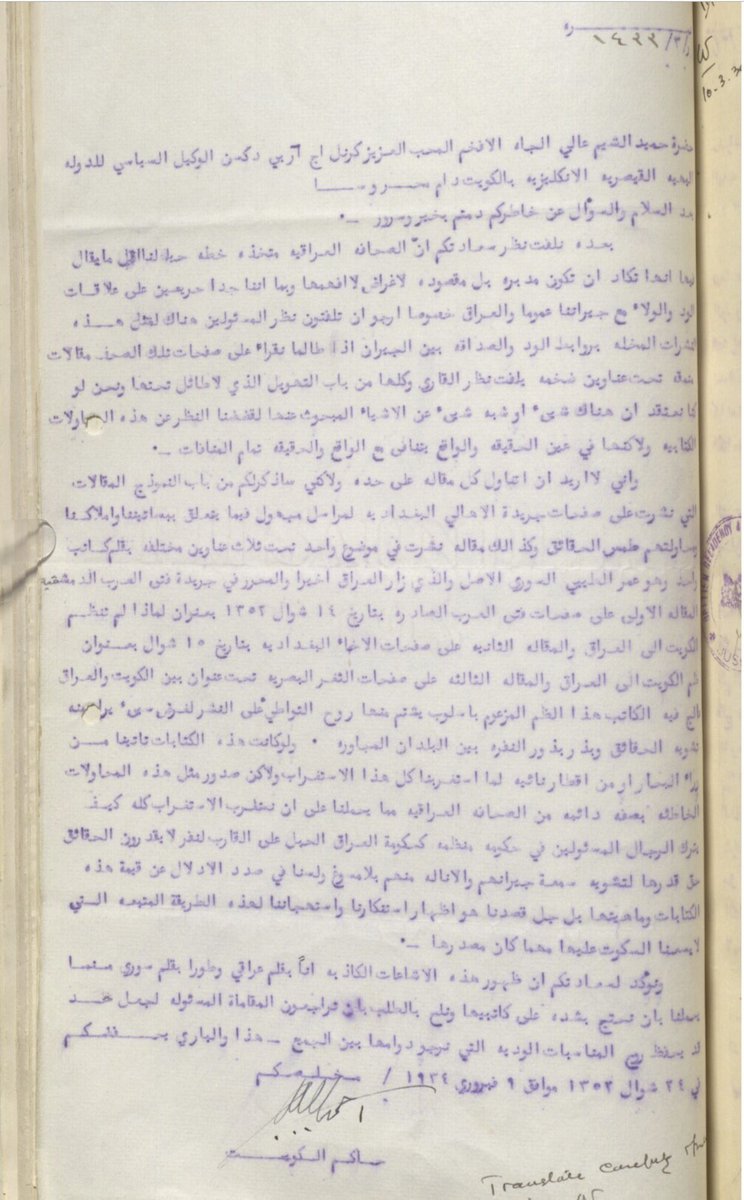 ر/٣/١٤٣٣
10.3.34
حضرة حميد الشيم عالي الجاه الافخم المحب العزيز كرنل اج آر بي دكسن الوكيل السياسي للدوله
البهيه القيصريه الانكليزيه بالكويت دام محروسا
بعد السلام والسؤال عن خاطركم دمتم بخير وسرور -.
بعده نلفت نظر سعادتكم ان الصحافه العراقيه متخذه خطه حيالنا اقل مايقال
فيها انها تكاد ان تكون مدبره بل مقصوده لاغراض لا افهمها وبما اننا جدا حريصين على علاقات
الود والولاء مع جيراننا عموما والعراق خصوصا ارجو ان تلفتون نظر المسئولين هناك لمثل هذه
النشرات المخله بروابط الود والصداقه بين الجيران اذا طالما نقراء على صفحات تلك الصحف مقالات
تحت عناوين ضخمه يلفت نظار القاري وكلها من باب التهويل الذي لاطائل تحتها ونحن لو
كنا نعتقد ان هناك شىء او شبه شىء عن الاشياء المبحوث عنها لغضضنا النظر عن هذه المحاولات
الكتابيه ولاكنها في عين الحقيقه والواقع يتنافى مع الواقع والحقيقه تمام المنافات -.
واني لا اريد ان اتناول كل مقاله على حده ولاكني ساذكرلكم من باب النموذج المقالات
التي نشرت على صفحات جريدة الاهالي البغداديه لمراسل مجهول فيما يتعلق ببساتيننا واملاكنا
ومحاولتهم طمس الحقائق وكذالك مقاله نشرت في موضوع واحد تحت ثلاث عناوين مختلفه بقلم كاتب
واحد وهو عمر الطيبي السوري الاصل والذي زار العراق اخيرا والمحرر في جريدة فتى العرب الدمشقيه
المقاله الاولى على صفحات فتى العرب الصادره بتاريخ ١٤ شوال ١٣٥٢ بعنوان لماذا لم تنظم
الكويت الى العراق والمقاله الثانيه على صفحات الاخاء البغداديه بتاريخ ١٥ شوال بعنوان
ظم الكويت الى العراق والمقاله الثالثه على صفحات الثغر البصريه تحت عنوان بين الكويت والعراق
عالج فيه الكاتب هذا الظم المزعوم باسلوب يشتم منها روح التواطي على النشر لغرض سىء يراد منه
تشويه الحقائق وبذر بذور النفره بين البلدان المجاوره . ولوكانت هذه الكتابات تاتينا من
وراء البحار او من اقطار نائيه لما استغربنا كل هذا الاستغراب ولاكن صدور مثل هذه المحاولات
الخاطئه بصفه دائمه من الصحافه العراقيه مما يحملنا على ان نستغرب الاستغراب كله كيف
يترك الرجال المسئولين في حكومه منظمه كحكومة العراق الحبل على القارب لنفر لا يقدرون الحقائق
حق قدرها لتشويه سمعة جيرانهم والاناله منهم بلا مسوغ ولسنا في صدد الادلال عن قيمة هذه
الكتابات وماهيتها بل جل قصدنا هو اظهار استنكارنا واستهجاننا لهذه الطريقة المتبعه التي
لا يسعنا السكوت عليها مهما كان مصدرها -.
ونوكد لسعادتكم ان ظهور هذه الاشاعات الكاذبه اناً بقلم عراقي وطورا بقلم سوري مما
يحملنا بان نحتج بشده على كاتبيها ونلح بالطلب بان تراجعون المقاماة المسئوله لجعل حد
لها يحفظ روح المناسبات الوديه التي نرجو دوامها بين الجميع - هذا والباري يحفظكم
في ٢٤ شوال ١٣٥٢ موافق ٩ فبروري ١٩٣٤ / مخلصكم
حاكم الكويت
Translate carefully